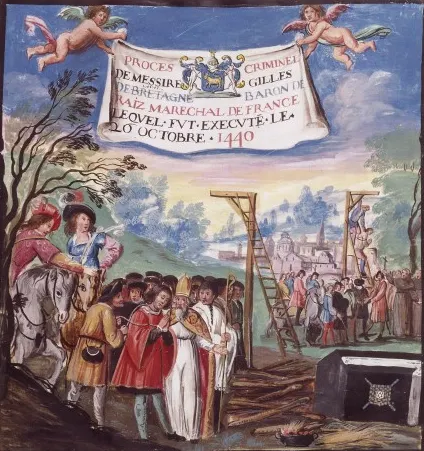 PROCES CRIMINEL
DE MESSIRE GILLES
DE BRETAGNE BARON DE
RAIZ MARECHAL DE FRANCE
LEQVEL · FVT · EXECVTÉ · LE ·
26 OCTOBRE · 1440